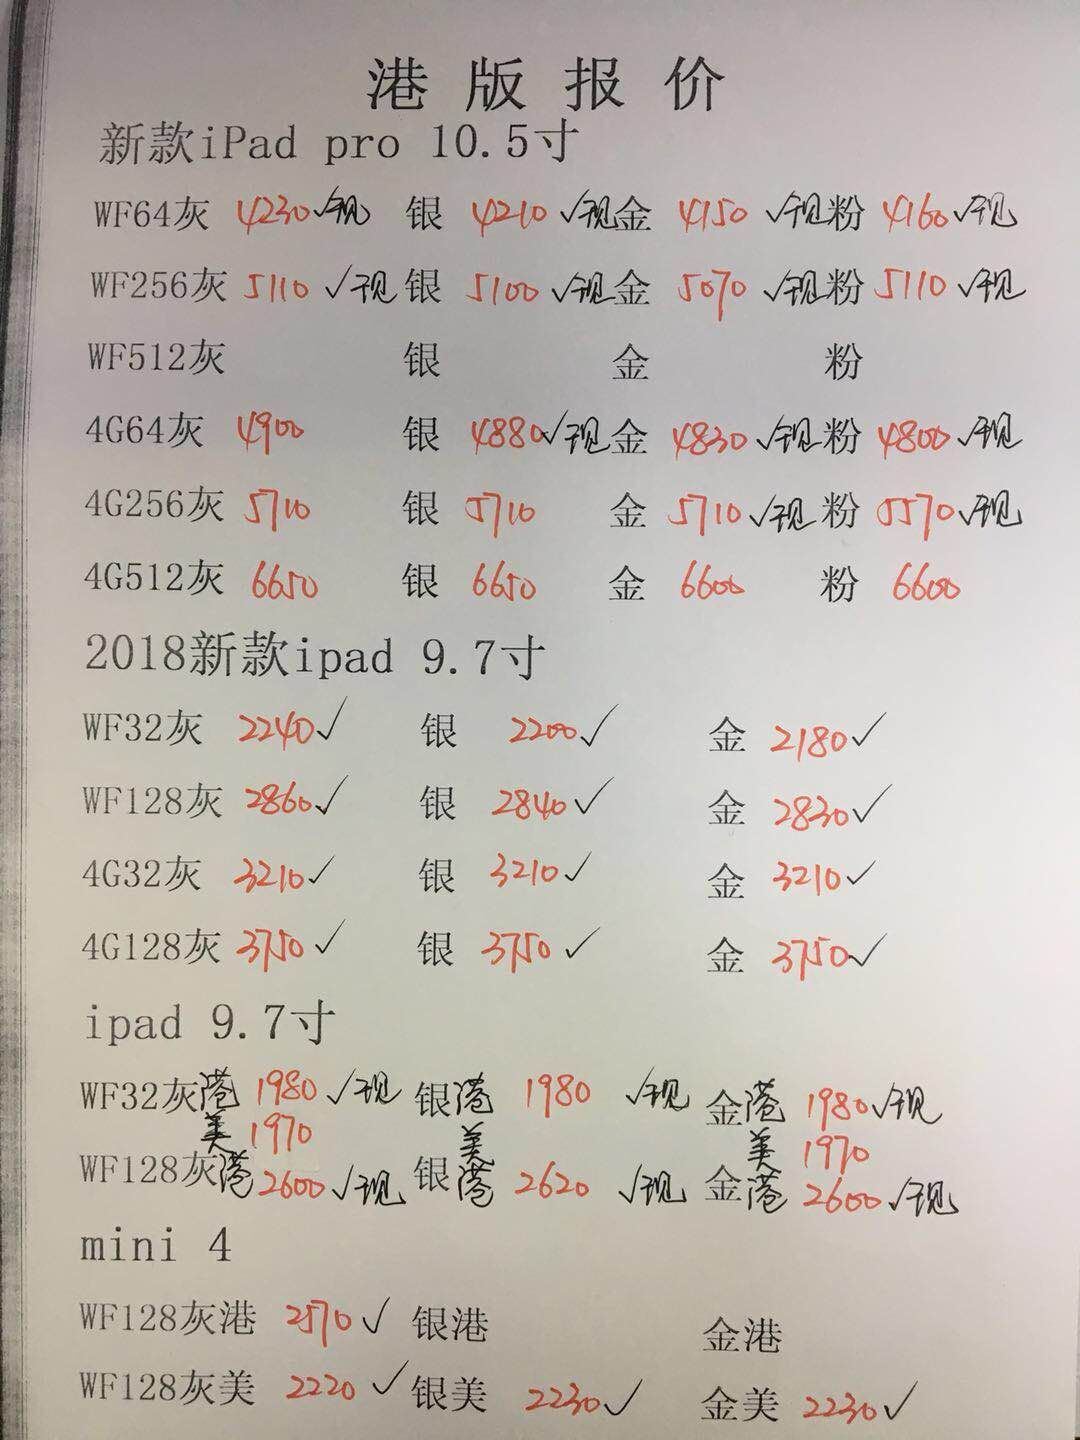 港版报价
新款iPad pro 10.5寸
WF64灰 4230√现 银 4210√现 金 4150√现 粉 4160√现
WF256灰 5110√现 银 5100√现 金 5070√现 粉 5110√现
WF512灰 银 金 粉
4G64灰 4900 银 4880√现 金 4830√现 粉 4800√现
4G256灰 5710 银 5710 金 5710√现 粉 5570√现
4G512灰 6650 银 6650 金 6600 粉 6600
2018新款ipad 9.7寸
WF32灰 2240√ 银 2200√ 金 2180√
WF128灰 2860√ 银 2840√ 金 2830√
4G32灰 3210√ 银 3210√ 金 3210√
4G128灰 3750√ 银 3750√ 金 3750√
ipad 9.7寸
WF32灰港 1980√现 银港 1980√现 金港 1980√现
美 1970 美 美 1970
WF128灰港 2600√现 银港 2620√现 金港 2600√现
mini 4
WF128灰港 2570√ 银港 金港
WF128灰美 2220√ 银美 2230√ 金美 2230√